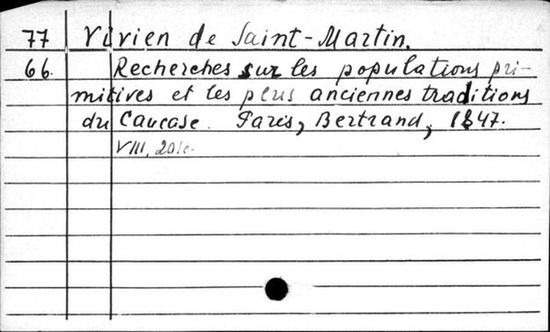 77 Vivien de Saint-Martin.
66. Recherches sur les populations pri-
mitives et les plus anciennes traditions
du Caucase. Paris, Bertrand, 1847.
VIII, 201c.